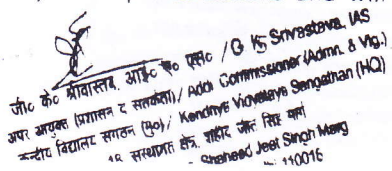 जी० के० श्रीवास्तव, आई० ए० एस० / G K Srivastava, IAS
अपर आयुक्त (प्रशासन द सतर्कता) / Addl Commissioner (Admn. & Vig.)
केन्द्रीय विद्यालय संगठन (मु०) / Kendriya Vidyalaya Sangathan (HQ)
18 संस्थागत क्षेत्र, शहीद जीत सिंह मार्ग
Shaheed Jeet Singh Marg
110016